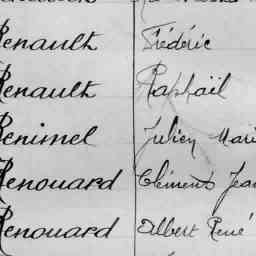 Renault Frédéric
Renault Raphaël
Renimel Julien Mari
Renouard Clément Jea
Renouard Albert René